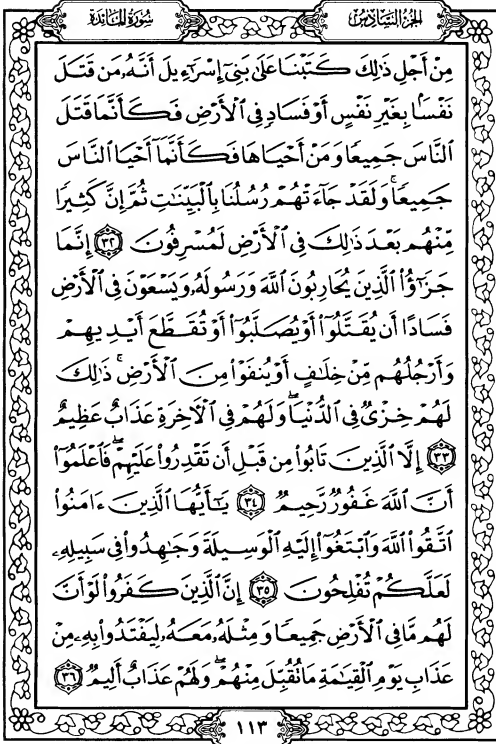 سُورَةُ المَائـِدَةِ
الجُزْءُ السَّادِسُ
مِنْ أَجْلِ ذَٰلِكَ كَتَبْنَا عَلَىٰ بَنِىٓ إِسْرَٰٓءِيلَ أَنَّهُۥ مَن قَتَلَ
نَفْسًۢا بِغَيْرِ نَفْسٍ أَوْ فَسَادٍ فِى ٱلْأَرْضِ فَكَأَنَّمَا قَتَلَ
ٱلنَّاسَ جَمِيعًا وَمَنْ أَحْيَاهَا فَكَأَنَّمَآ أَحْيَا ٱلنَّاسَ
جَمِيعًا ۚ وَلَقَدْ جَآءَتْهُمْ رُسُلُنَا بِٱلْبَيِّنَٰتِ ثُمَّ إِنَّ كَثِيرًا
مِّنْهُم بَعْدَ ذَٰلِكَ فِى ٱلْأَرْضِ لَمُسْرِفُونَ ٣٢ إِنَّمَا
جَزَٰٓؤُا۟ ٱلَّذِينَ يُحَارِبُونَ ٱللَّهَ وَرَسُولَهُۥ وَيَسْعَوْنَ فِى ٱلْأَرْضِ
فَسَادًا أَن يُقَتَّلُوٓا۟ أَوْ يُصَلَّبُوٓا۟ أَوْ تُقَطَّعَ أَيْدِيهِمْ
وَأَرْجُلُهُم مِّنْ خِلَٰفٍ أَوْ يُنفَوْا۟ مِنَ ٱلْأَرْضِ ۚ ذَٰلِكَ
لَهُمْ خِزْىٌ فِى ٱلدُّنْيَا ۖ وَلَهُمْ فِى ٱلْءَاخِرَةِ عَذَابٌ عَظِيمٌ
٣٣ إِلَّا ٱلَّذِينَ تَابُوا۟ مِن قَبْلِ أَن تَقْدِرُوا۟ عَلَيْهِمْ ۖ فَٱعْلَمُوٓا۟
أَنَّ ٱللَّهَ غَفُورٌ رَّحِيمٌ ٣٤ يَٰٓأَيُّهَا ٱلَّذِينَ ءَامَنُوا۟
ٱتَّقُوا۟ ٱللَّهَ وَٱبْتَغُوٓا۟ إِلَيْهِ ٱلْوَسِيلَةَ وَجَٰهِدُوا۟ فِى سَبِيلِهِۦ
لَعَلَّكُمْ تُفْلِحُونَ ٣٥ إِنَّ ٱلَّذِينَ كَفَرُوا۟ لَوْ أَنَّ
لَهُم مَّا فِى ٱلْأَرْضِ جَمِيعًا وَمِثْلَهُۥ مَعَهُۥ لِيَفْتَدُوا۟ بِهِۦ مِنْ
عَذَابِ يَوْمِ ٱلْقِيَٰمَةِ مَا تُقُبِّلَ مِنْهُمْ ۖ وَلَهُمْ عَذَابٌ أَلِيمٌ ٣٦
١١٣